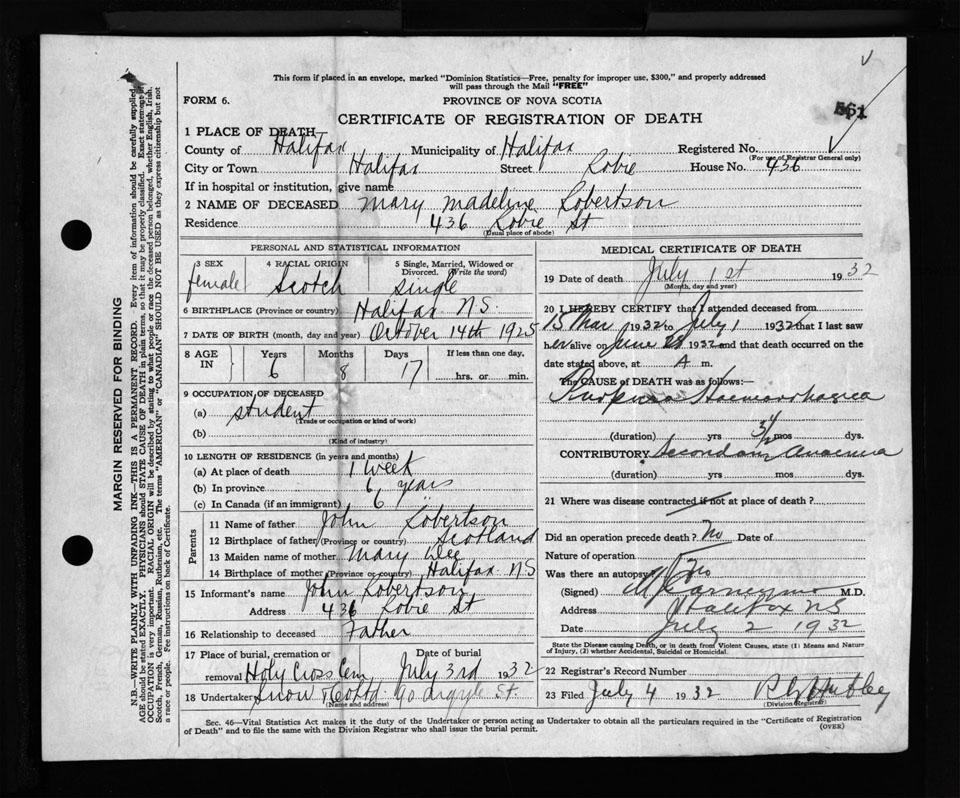 This form if placed in an envelope, marked "Dominion Statistics—Free, penalty for improper use, $300," and properly addressed
will pass through the Mail "FREE"
FORM 6.
PROVINCE OF NOVA SCOTIA
561
CERTIFICATE OF REGISTRATION OF DEATH
1 PLACE OF DEATH
County of Halifax Municipality of Halifax Registered No.
(For use of Registrar General only)
City or Town Halifax Street Robie House No. 436
If in hospital or institution, give name
2 NAME OF DECEASED Mary Madeline Robertson
Residence 436 Robie St
(Usual place of abode)
PERSONAL AND STATISTICAL INFORMATION
3 SEX 4 RACIAL ORIGIN 5 Single, Married, Widowed or
Divorced. (Write the word)
female Scotch single
6 BIRTHPLACE (Province or country) Halifax N.S.
7 DATE OF BIRTH (month, day and year) October 14th 1925
8 AGE IN Years Months Days If less than one day,
6 8 17 hrs. or min.
9 OCCUPATION OF DECEASED
(a) student
(Trade or occupation or kind of work)
(b)
(Kind of industry)
10 LENGTH OF RESIDENCE (in years and months)
(a) At place of death 1 week
(b) In province 6 years
(c) In Canada (if an immigrant) 6 "
Parents
11 Name of father John Robertson
12 Birthplace of father (Province or country) Scotland
13 Maiden name of mother Mary
14 Birthplace of mother (Province or country) Halifax NS
15 Informant's name John Robertson
Address 436 Robie St
16 Relationship to deceased Father
17 Place of burial, cremation or removal Holy Cross Cem Date of burial July 3rd 1932
18 Undertaker Snow & Co Ltd 90 Argyle St.
(Name and address)
MEDICAL CERTIFICATE OF DEATH
19 Date of death July 1st 1932
(Month, day and year)
20 I HEREBY CERTIFY that I attended deceased from
15 Mar 1932 to July 1 1932 that I last saw
her alive on June 28 1932 and that death occurred on the
date stated above, at A m.
The CAUSE OF DEATH was as follows:—
Purpura Haemorrhagica
(duration) yrs 3 1/2 mos dys.
CONTRIBUTORY Secondary Anaemia
(duration) yrs mos dys.
21 Where was disease contracted if not at place of death?
Did an operation precede death? No Date of
Nature of operation
Was there an autopsy? No
(Signed) M.D.
Address Halifax NS
Date July 2 1932
State the Disease causing Death, or in death from Violent Causes, state (1) Means and Nature
of Injury, (2) whether Accidental, Suicidal or Homicidal.
22 Registrar's Record Number
23 Filed July 4 1932
(Division Registrar)
Sec. 46—Vital Statistics Act makes it the duty of the Undertaker or person acting as Undertaker to obtain all the particulars required in the "Certificate of Registration
of Death" and to file the same with the Division Registrar who shall issue the burial permit.
(OVER)
MARGIN RESERVED FOR BINDING
N.B.—WRITE PLAINLY WITH UNFADING INK—THIS IS A PERMANENT RECORD. Every item of information should be carefully supplied.
AGE should be stated EXACTLY. PHYSICIANS should STATE CAUSE OF DEATH in plain terms, so that it may be properly classified. Exact statement of
OCCUPATION is very important. RACIAL ORIGIN will be described by stating to what people or race the deceased person belonged, whether English, Irish,
Scotch, French, German, Russian, Ruthenian, etc. The terms "AMERICAN" or "CANADIAN" SHOULD NOT BE USED as they express citizenship but not
a race or people. Fee instructions on back of Certificate.